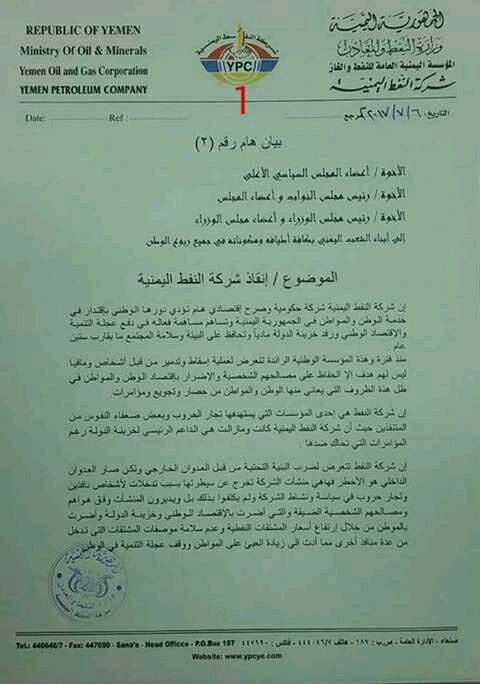 REPUBLIC OF YEMEN
Ministry Of Oil & Minerals
Yemen Oil and Gas Corporation
YEMEN PETROLEUM COMPANY
شركة النفط اليمنية
YPC
الجمهورية اليمنية
وزارة النفط والمعادن
المؤسسة اليمنية العامة للنفط والغاز
شركة النفط اليمنية
1
Date: Ref :
التاريخ: ٢٠١٧/٧/٦م المرجع
بيان هام رقم (٢)
الأخوة / أعضاء المجلس السياسي الأعلى
الأخوة / رئيس مجلس النواب و أعضاء المجلس
الأخوة / رئيس مجلس الوزراء و أعضاء مجلس الوزراء
إلى أبناء الشعب اليمني بكافة أطيافه ومكوناته في جميع ربوع الوطن
الموضوع / إنقاذ شركة النفط اليمنية
إن شركة النفط اليمنية شركة حكومية وصرح إقتصادي هام تؤدي دورها الوطني بإقتدار في
خدمة الوطن والمواطن في الجمهورية اليمنية وتساهم مساهمة فعاله في دفع عجلة التنمية
والإقتصاد الوطني ورفد خزينة الدولة مادياً وتحافظ على البيئة وسلامة المجتمع ما يقارب ستين
عام
منذ فترة وهذة المؤسسة الوطنية الرائدة تتعرض لعملية إسقاط وتدمير من قبل أشخاص ومافيا
ليس لهم هدف إلا الحفاظ على مصالحهم الشخصية والإضرار بإقتصاد الوطن والمواطن في
ظل هذة الظروف التي يعاني منها الوطن والمواطن من حصار وتجويع ومؤامرات.
إن شركة النفط هي إحدى المؤسسات التي يستهدفها تجار الحروب وبعض ضعفاء النفوس من
المتنفذين حيث أن شركة النفط اليمنية كانت ومازالت هي الداعم الرئيسي لخزينة الدولة رغم
المؤامرات التي تحاك ضدها .
إن شركة النفط تتعرض لضرب البنية التحتية من قبل العدوان الخارجي ولكن صار العدوان
الداخلي هو الأخطر فهاهي منشآت الشركة تخرج عن سيطرتها بسبب تدخلات لأشخاص نافذين
وتجار حروب في سياسة ونشاط الشركة ولم يكتفوا بذلك بل ويديرون المنشآت وفق هواهم
ومصالحهم الشخصية الضيقة والتي أضرت بالاقتصاد الوطني وخزينة الدولة وأضرت
بالموطن من خلال إرتفاع أسعار المشتقات النفطية وعدم سلامة موصفات المشتقات التي تدخل
من عدة منافذ أخرى مما أدت الى زيادة العبئ على المواطن ووقف عجلة التنمية في الوطن
صنعاء - الإدارة العامة - ص.ب : ١٨٧ - هاتف ٤٤٤٠٤٦/٧ - فاكس : ٤٤٧٦٩٠
Tel.: 440646/7 - Fax: 447690 - Sana'a - Head Officce - P.O.Box 187
Website: www.ypcye.com